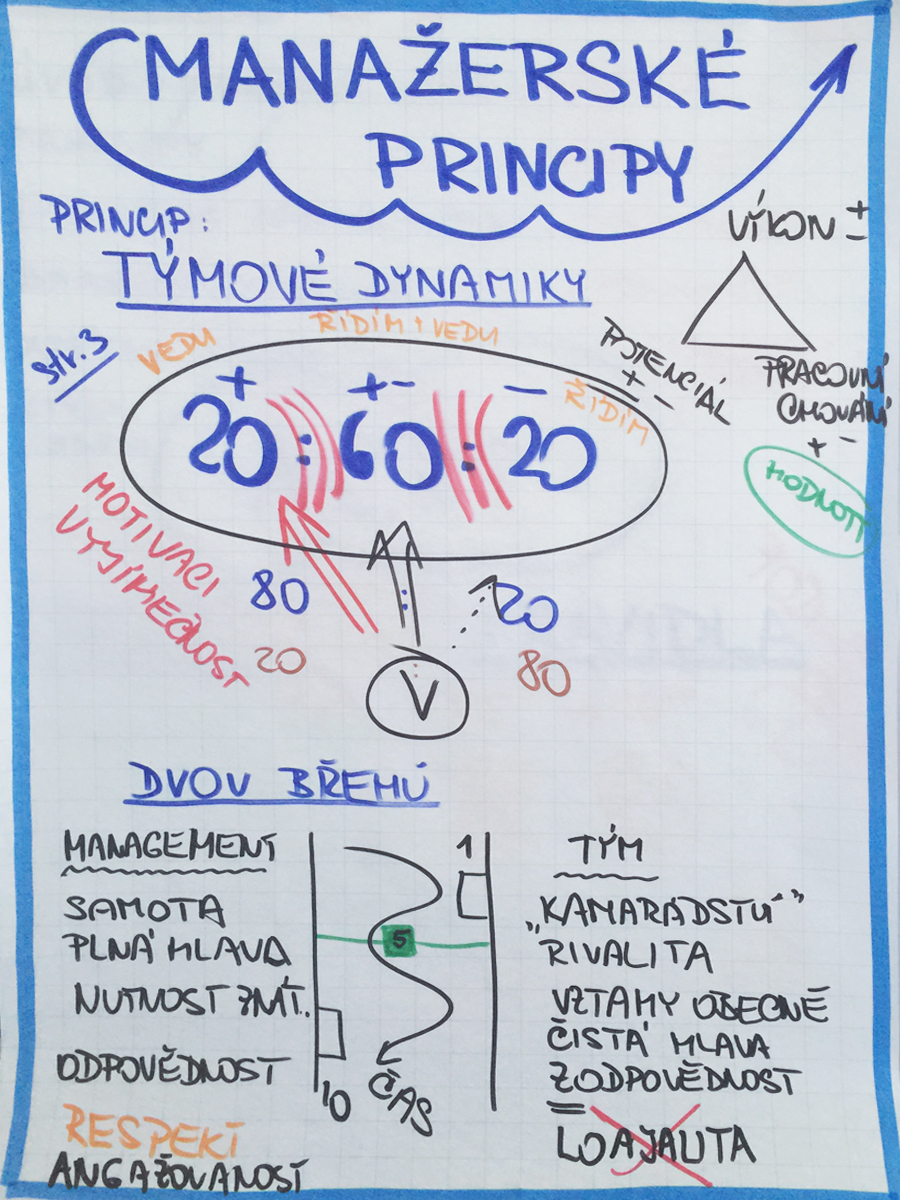 MANAŽERSKÉ
PRINCIPY
PRINCIP:
TÝMOVÉ DYNAMIKY
str. 3
VEDU
ŘÍDÍM + VEDU
ŘÍDÍM
+
+ -
-
20 : 60 : 20
VÝKON + -
POTENCIÁL
+ -
PRACOVNÍ
CHOVÁNÍ
+ -
HODNOTY
MOTIVACI
VÝJIMEČNOST
80
20
20
80
V
DVOU BŘEHŮ
MANAGEMENT
SAMOTA
PLNÁ HLAVA
NUTNOST ZNÁT..
ODPOVĚDNOST
RESPEKT
ANGAŽOVANOST
1
5
10
ČAS
TÝM
„KAMARÁDSTVÍ”
„RIVALITA
VZTAHY OBECNĚ
ČISTÁ HLAVA
ZODPOVĚDNOST
LOAJALITA